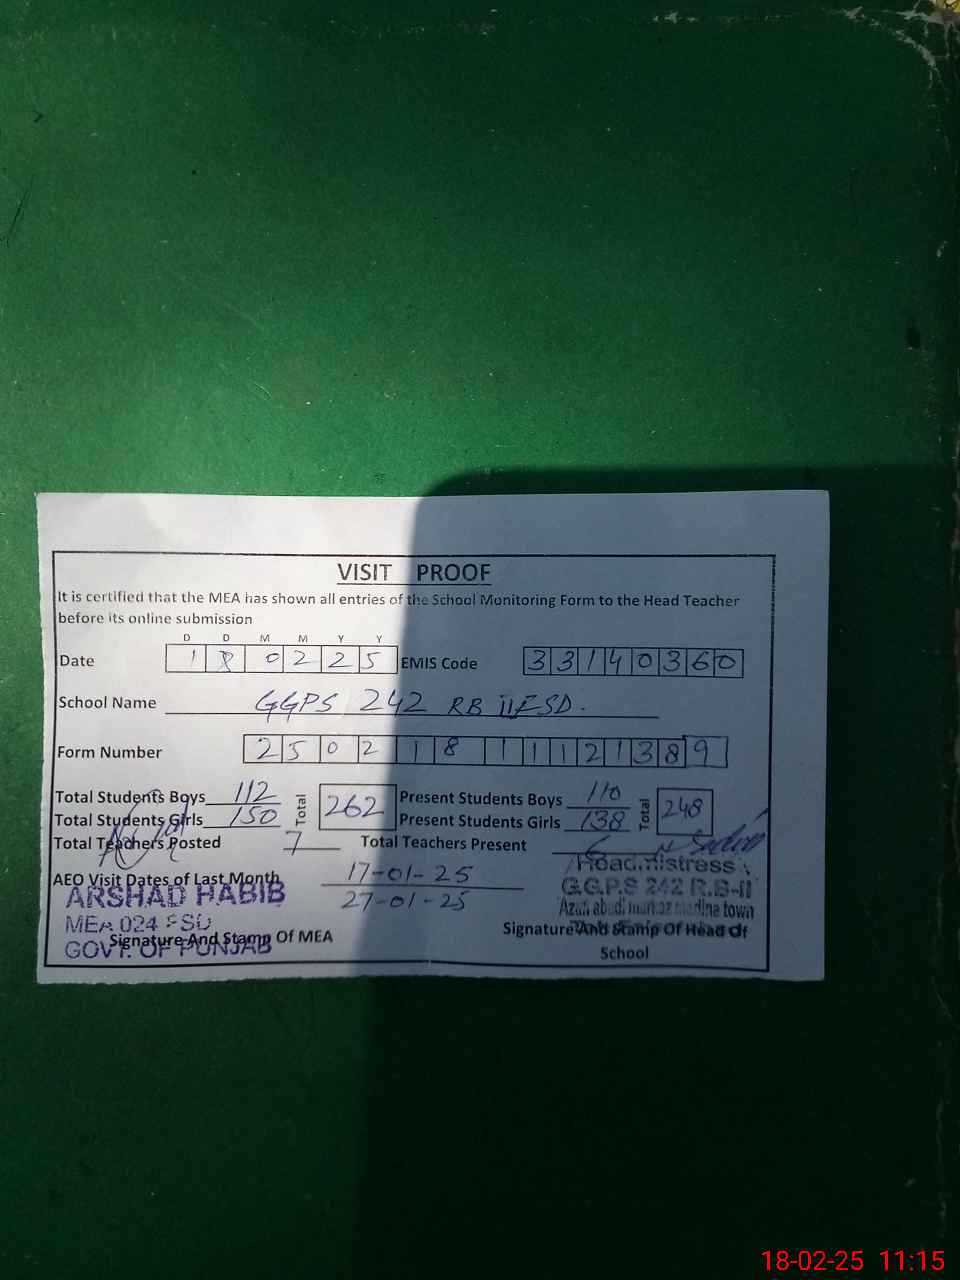 VISIT PROOF
It is certified that the MEA has shown all entries of the School Monitoring Form to the Head Teacher
before its online submission
D D M M Y Y
Date 18 02 25 EMIS Code 33140360
School Name GGPS 242 RB II FSD.
Form Number 2502 18 11121389
Total Students Boys 112 Total 262 Present Students Boys 110 Total 248
Total Students Girls 150 Present Students Girls 138
Total Teachers Posted 7 Total Teachers Present 6
AEO Visit Dates of Last Month 17-01-25
27-01-25
ARSHAD HABIB
MEA 024 FSD
GOVT. OF PUNJAB
Signature And Stamp Of MEA
Headmistress
G.G.P.S 242 R.B-II
madina town
Signature And Stamp Of Head Of
School
18-02-25 11:15